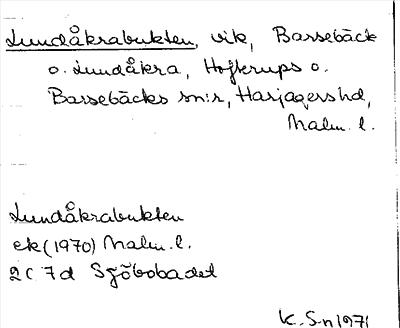 Lundåkrabukten, vik, Barsebäck
o. Lundåkra, Hofterups o.
Barsebäcks sn:r, Harjagers hd,
Malm. l.
Lundåkrabukten
ek (1970) Malm. l.
2C 7d Sjöbobadet
K. S-n 1971